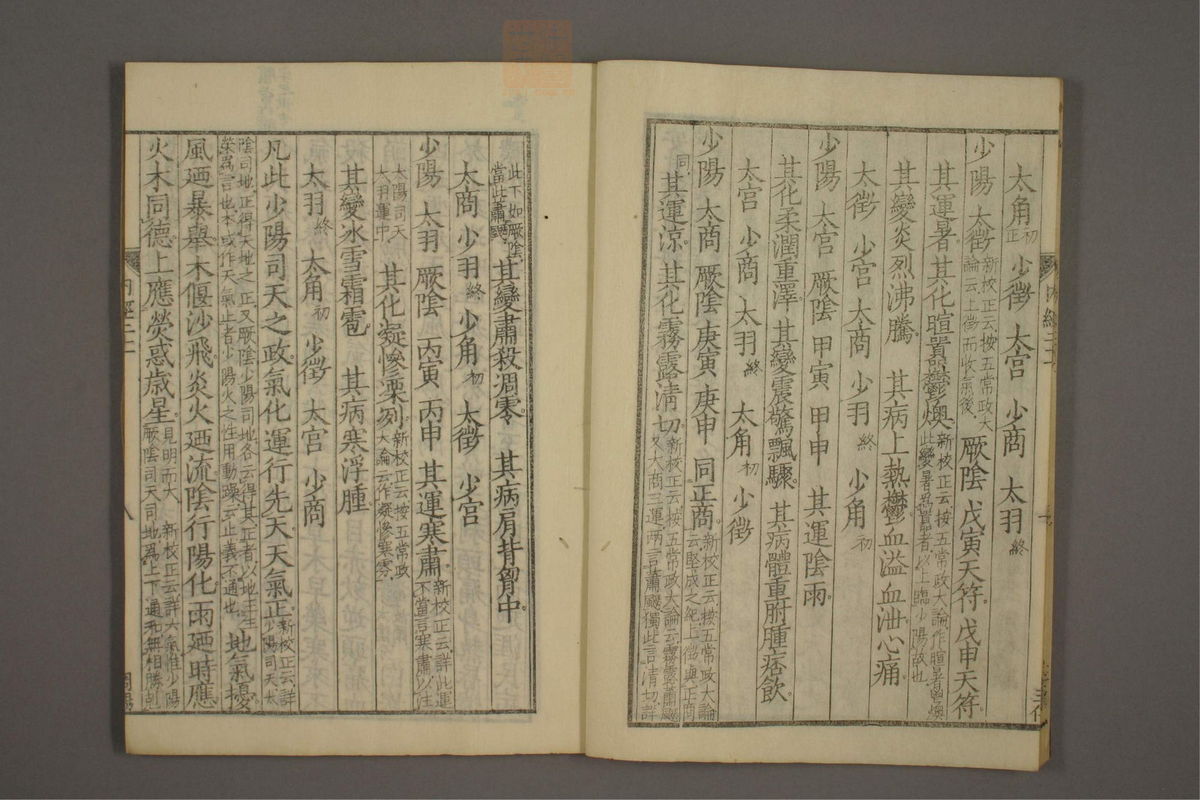 太角初正 少徵 太宮 少商 太羽終
少陽 太徵 新校正云按五常政大論云上徵而收氣後 厥陰 戊寅天符 戊申天符
其運暑 其化暄囂鬱燠 新校正云按五常政大論作暄暑鬱燠此變暑爲囂者以上臨少陽故也
其變炎烈沸騰 其病上熱鬱血溢血泄心痛
太徵 少宮 太商 少羽終 少角初
少陽 太宮 厥陰 甲寅 甲申 其運陰雨
其化柔潤重澤 其變震驚飄驟 其病體重胕腫痞飮
太宮 少商 太羽終 太角初 少徵
少陽 太商 厥陰 庚寅 庚申 同正商 新校正云按五常政大論云堅成之紀上徵與正商
同 其運凉 其化霧露淸切 新校正云按五常政大論云霧露蕭飋又太商三運兩言蕭飋獨此言淸切詳
此下如厥陰當此蕭飋 其變肅殺凋零 其病肩背胷中
太商 少羽終 少角初 太徵 少宮
少陽 太羽 厥陰 丙寅 丙申 其運寒肅 新校正云詳此運不當言寒肅以注
太陽司天太羽運中 其化凝慘凓冽 新校正云按五常政大論云作凝慘寒雰
其變冰雪霜雹 其病寒浮腫
太羽終 太角初 少徵 太宮 少商
凡此少陽司天之政氣化運行先天天氣正 新校正云詳少陽司天太
陰司地正得天地之正又厥陰少陽司地各云得其正者以地主生榮爲言也本或作天氣止者少陽火之性用動躁云止義不通也 地氣擾
風迺暴擧木偃沙飛炎火迺流陰行陽化雨迺時應
火木同德上應熒惑歲星 見明而大 新校正云詳六氣惟少陽厥陰司天司地爲上下通和無相勝剋